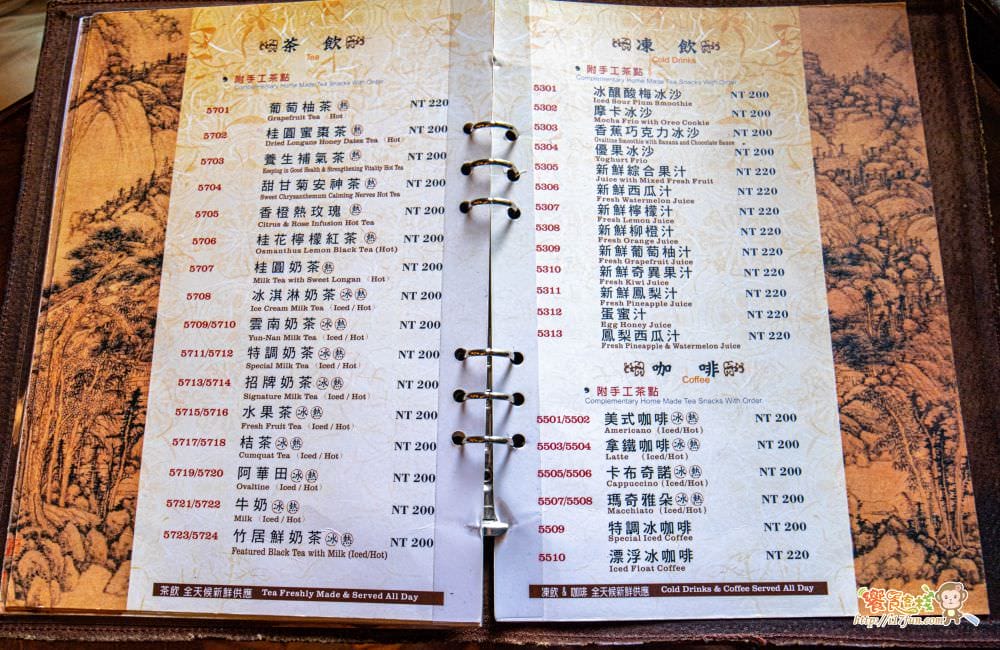 茶 飲
Tea
附手工茶點
Complementary Home Made Tea Snacks With Order
5701 葡萄柚茶 熱 NT 220
Grapefruit Tea (Hot
5702 桂圓蜜棗茶 熱 NT 200
Dried Longans Honey Dates Tea (Hot)
5703 養生補氣茶 熱 NT 200
Keeping in Good Health & Strengthening Vitality Hot Tea
5704 甜甘菊安神茶 熱 NT 200
Sweet Chrysanthemum Calming Nerves Hot Tea
5705 香橙熱玫瑰 熱 NT 200
Citrus & Rose Infusion Hot Tea
5706 桂花檸檬紅茶 熱 NT 200
Osmanthus Lemon Black Tea (Hot)
5707 桂圓奶茶 熱 NT 200
Milk Tea with Sweet Longan (Hot)
5708 冰淇淋奶茶 冰 熱 NT 200
Ice Cream Milk Tea (Hot)
5709/5710 雲南奶茶 冰 熱 NT 200
Yun-Nan Milk Tea (Iced / Hot)
5711/5712 特調奶茶 冰 熱 NT 200
Special Milk Tea (Iced / Hot)
5713/5714 招牌奶茶 冰 熱 NT 200
Signature Milk Tea (Iced / Hot)
5715/5716 水果茶 冰 熱 NT 200
Fresh Fruit Tea (Iced / Hot)
5717/5718 桔茶 冰 熱 NT 200
Cumquat Tea (Iced / Hot)
5719/5720 阿華田 冰 熱 NT 200
Ovaltine (Iced / Hot)
5721/5722 牛奶 冰 熱 NT 200
Milk (Iced / Hot)
5723/5724 竹居鮮奶茶 冰 熱 NT 200
Featured Black Tea with Milk (Iced/Hot)
茶飲 全天候新鮮供應 Tea Freshly Made & Served All Day
凍 飲
Cold Drinks
附手工茶點
Complementary Home Made Tea Snacks With Order
5301 冰釀酸梅冰沙 NT 200
Iced Sour Plum Smoothie
5302 摩卡冰沙 NT 200
Mocha Frio with Oreo Cookie
5303 香蕉巧克力冰沙 NT 200
Ovaltine Smoothie with Banana and Chocolate Sauce
5304 優果冰沙 NT 200
Yoghurt Frio
5305 新鮮綜合果汁 NT 220
Juice with Mixed Fresh Fruit
5306 新鮮西瓜汁 NT 220
Fresh Watermelon Juice
5307 新鮮檸檬汁 NT 220
Fresh Lemon Juice
5308 新鮮柳橙汁 NT 220
Fresh Orange Juice
5309 新鮮葡萄柚汁 NT 220
Fresh Grapefruit Juice
5310 新鮮奇異果汁 NT 220
Fresh Kiwi Juice
5311 新鮮鳳梨汁 NT 220
Fresh Pineapple Juice
5312 蛋蜜汁 NT 220
Egg Honey Juice
5313 鳳梨西瓜汁 NT 220
Fresh Pineapple & Watermelon Juice
咖 啡
Coffee
附手工茶點
Complementary Home Made Tea Snacks With Order
5501/5502 美式咖啡 冰 熱 NT 200
Americano (Iced/Hot)
5503/5504 拿鐵咖啡 冰 熱 NT 200
Latte (Iced/Hot)
5505/5506 卡布奇諾 冰 熱 NT 200
Cappuccino (Iced/Hot)
5507/5508 瑪奇雅朵 冰 熱 NT 200
Macchiato (Iced/Hot)
5509 特調冰咖啡 NT 200
Special Iced Coffee
5510 漂浮冰咖啡 NT 220
Iced Float Coffee
凍飲 & 咖啡 全天候新鮮供應 Cold Drinks & Coffee Served All Day
http://i17fun.com/